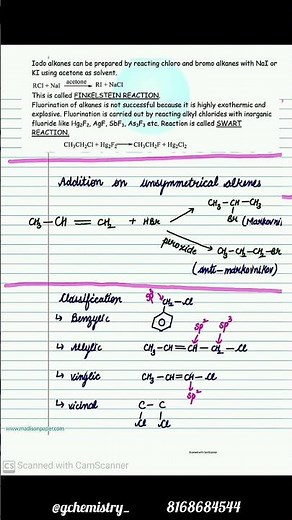 Iodo alkanes can be prepared by reacting chloro and bromo alkanes with NaI or
KI using acetone as solvent.
RCl + NaI acetone→ RI + NaCl
This is called FINKELSTEIN REACTION.
Fluorination of alkanes is not successful because it is highly exothermic and
explosive. Fluorination is carried out by reacting alkyl chlorides with inorganic
fluoride like Hg₂F₂, AgF, SbF₃, As₂F₃ etc. Reaction is called SWART
REACTION.
CH₃CH₂Cl + Hg₂F₂→ CH₃CH₂F + Hg₂Cl₂
Addition on unsymmetrical alkenes
CH₃ - CH - CH₃
Br (Markovni
CH₃ - CH = CH₂ + HBr
peroxide
CH₃-CH₂-CH₂-Br
(anti-markovnikov)
Classification
sp³
CH₂ - Cl
↳ Benzylic
sp² sp³
↳ Allylic CH₃-CH=CH-CH₂-Cl
↳ vinylic CH₃-CH=CH-Cl
sp²
↳ vicinal C - C
Cl Cl
CS Scanned with CamScanner
@gchemistry_ 8168684544